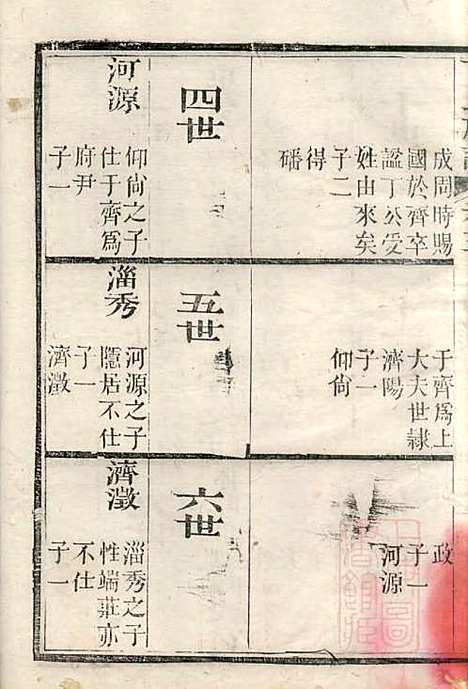 成周時賜
國於齊卒
諡丁公受
姓由來矣
子二
得
磻
四世
河源
仰尙之子
仕于齊爲
府尹
子一
于齊爲上
大夫世隷
濟陽
子一
仰尙
五世
淄秀
河源之子
隱居不仕
子一
濟澂
政
子一
河源
六世
濟澂
淄秀之子
性端莊亦
不仕
子一